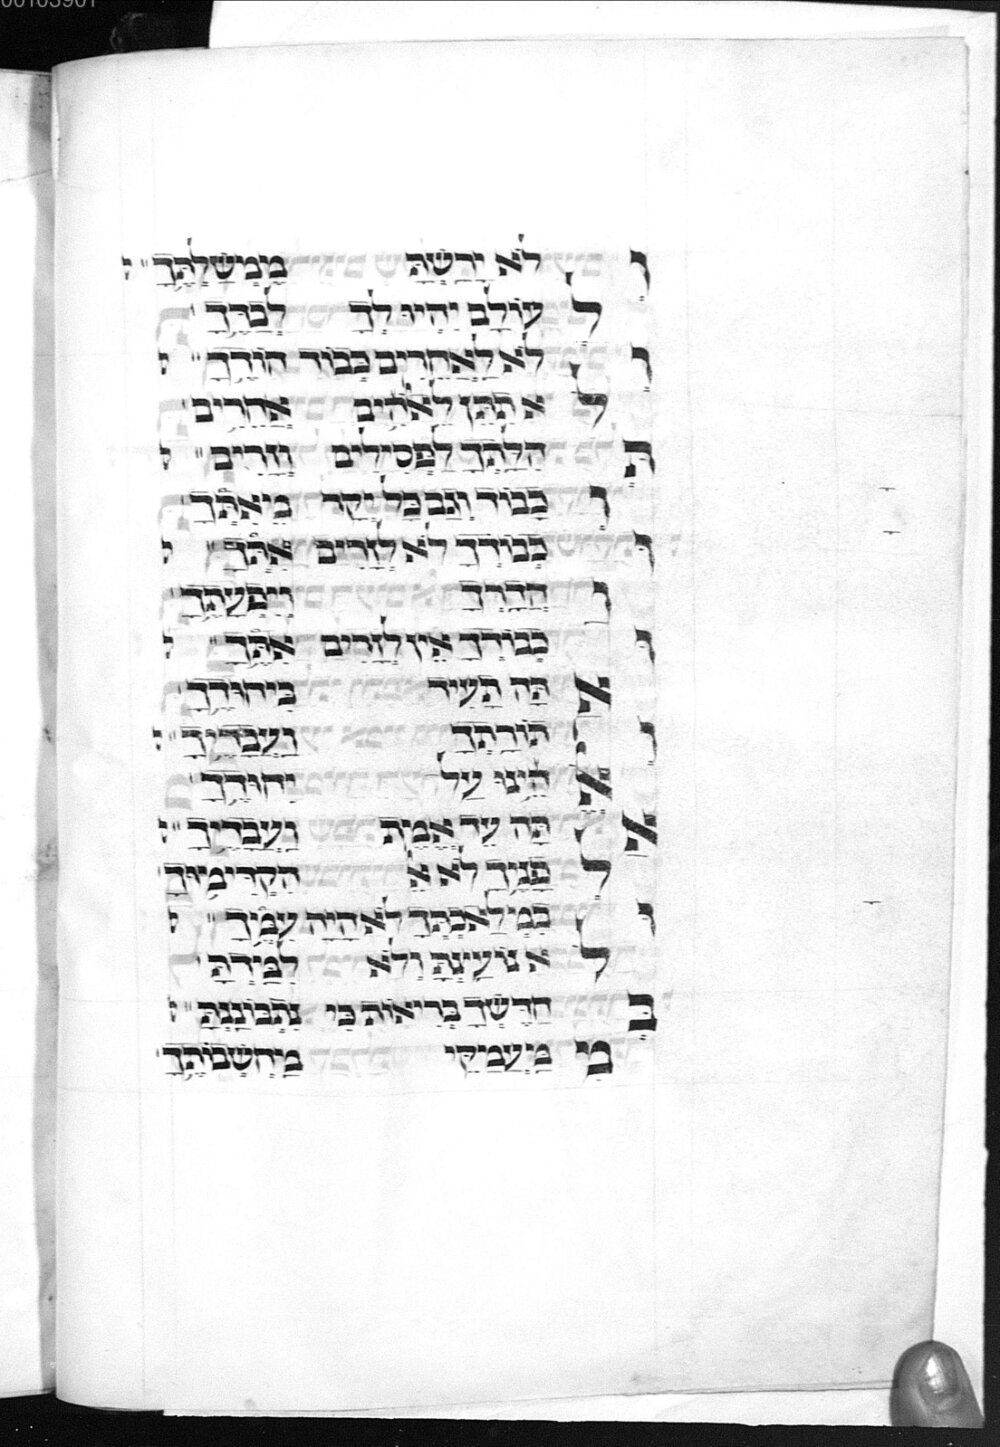 00103901
וְ לֹא יָרַשְׁתָּ מֶמְשַׁלְתֶּךָ ׃
לְ עוֹלָם יִהְיוּ לְךָ לְבַדֶּךָ
וְ לֹא לַאֲחֵרִים כְּבוֹד הוֹדֶךָ ׃
לֹ א תִתֵּן לֵאלֹהִים אֲחֵרִים
תְּ הִלָּתְךָ לַפְּסִילִים וְזָרִים ׃
וְ כָבוֹד וְגַם כָּל יְקָר מֵאִתָּךְ
וּ כְבוֹדְךָ לֹא לְזָרִים אִתָּךְ ׃
וַ הֲדָרְךָ וְיִפְעָתֶךָ
וּ כְבוֹדְךָ אֵין לְזָרִים אִתָּךְ ׃
אַ תָּה תָעִיד בִּיהוּדֶךָ
וְ תוֹרָתְךָ וַעֲבָדֶיךָ ׃
אֵ הֵינוּ עַל יִחוּדֶךָ
אַ תָּה עֵד אֱמֶת וַעֲבָדֶיךָ ׃
לְ פָנֶיךָ לֹא אֵ הִקְדִּימוּךָ
וּ בִמְלַאכְתְּךָ לֹא הָיָה עִמֶּךָ ׃
לֹ א נוֹעַצְתָּ וְלֹא לֻמַּדְתָּ
בְּ הַדָּשְׁךָ בְּרִיאוֹת כִּי נִתְבּוֹנַנְתָּ ׃
מִ מַּעֲמַקֵּי מַחְשְׁבוֹתֶךָ